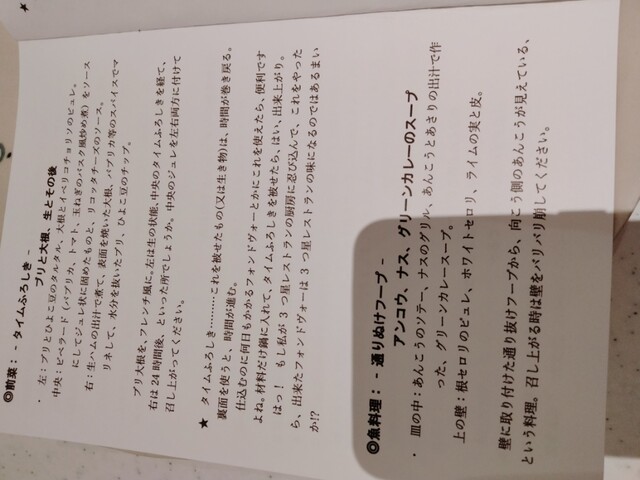 ◎前菜： - タイムふろしき -
ブリと大根、生とその後
・ 左：ブリとひよこ豆のタルタル、大根とイベリコチョリソのピュレ。
中央：ピペラード（パプリカ、トマト、玉ねぎのバスク風炒め煮）をソース
にしてジュレ状に固めたものと、リコッタチーズのソース。
右：生ハムの出汁で煮て、表面を焼いた大根、パプリカ等のスパイスでマ
リネして、水分を抜いたブリ、ひよこ豆のチップ。
ブリ大根を、フレンチ風に。左は生の状態、中央のタイムふろしきを経て、
右は 24 時間後、といった所でしょうか。中央のジュレを左右両方に付けて
召し上がってください。
★ タイムふろしき………これを被せたもの(又は生き物)は、時間が巻き戻る。
裏面を使うと、時間が進む。
仕込むのに何日もかかるフォンドヴォーとかにこれを使えたら、便利です
よね。材料だけ鍋に入れて、タイムふろしきを被せたら、はい、出来上がり。
はっ！ もし私が 3 つ星レストランの厨房に忍び込んで、これをやった
ら、出来たフォンドヴォーは 3 つ星レストランの味になるのではあるまい
か!?
◎魚料理： - 通りぬけフープ -
アンコウ、ナス、グリーンカレーのスープ
・ 皿の中：あんこうのソテー、ナスのグリル、あんこうとあさりの出汁で作
った、グリーンカレースープ。
上の壁：根セロリのピュレ、ホワイトセロリ、ライムの実と皮。
壁に取り付けた通り抜けフープから、向こう側のあんこうが見えている、
という料理。召し上がる時は壁をバリバリ崩してください。